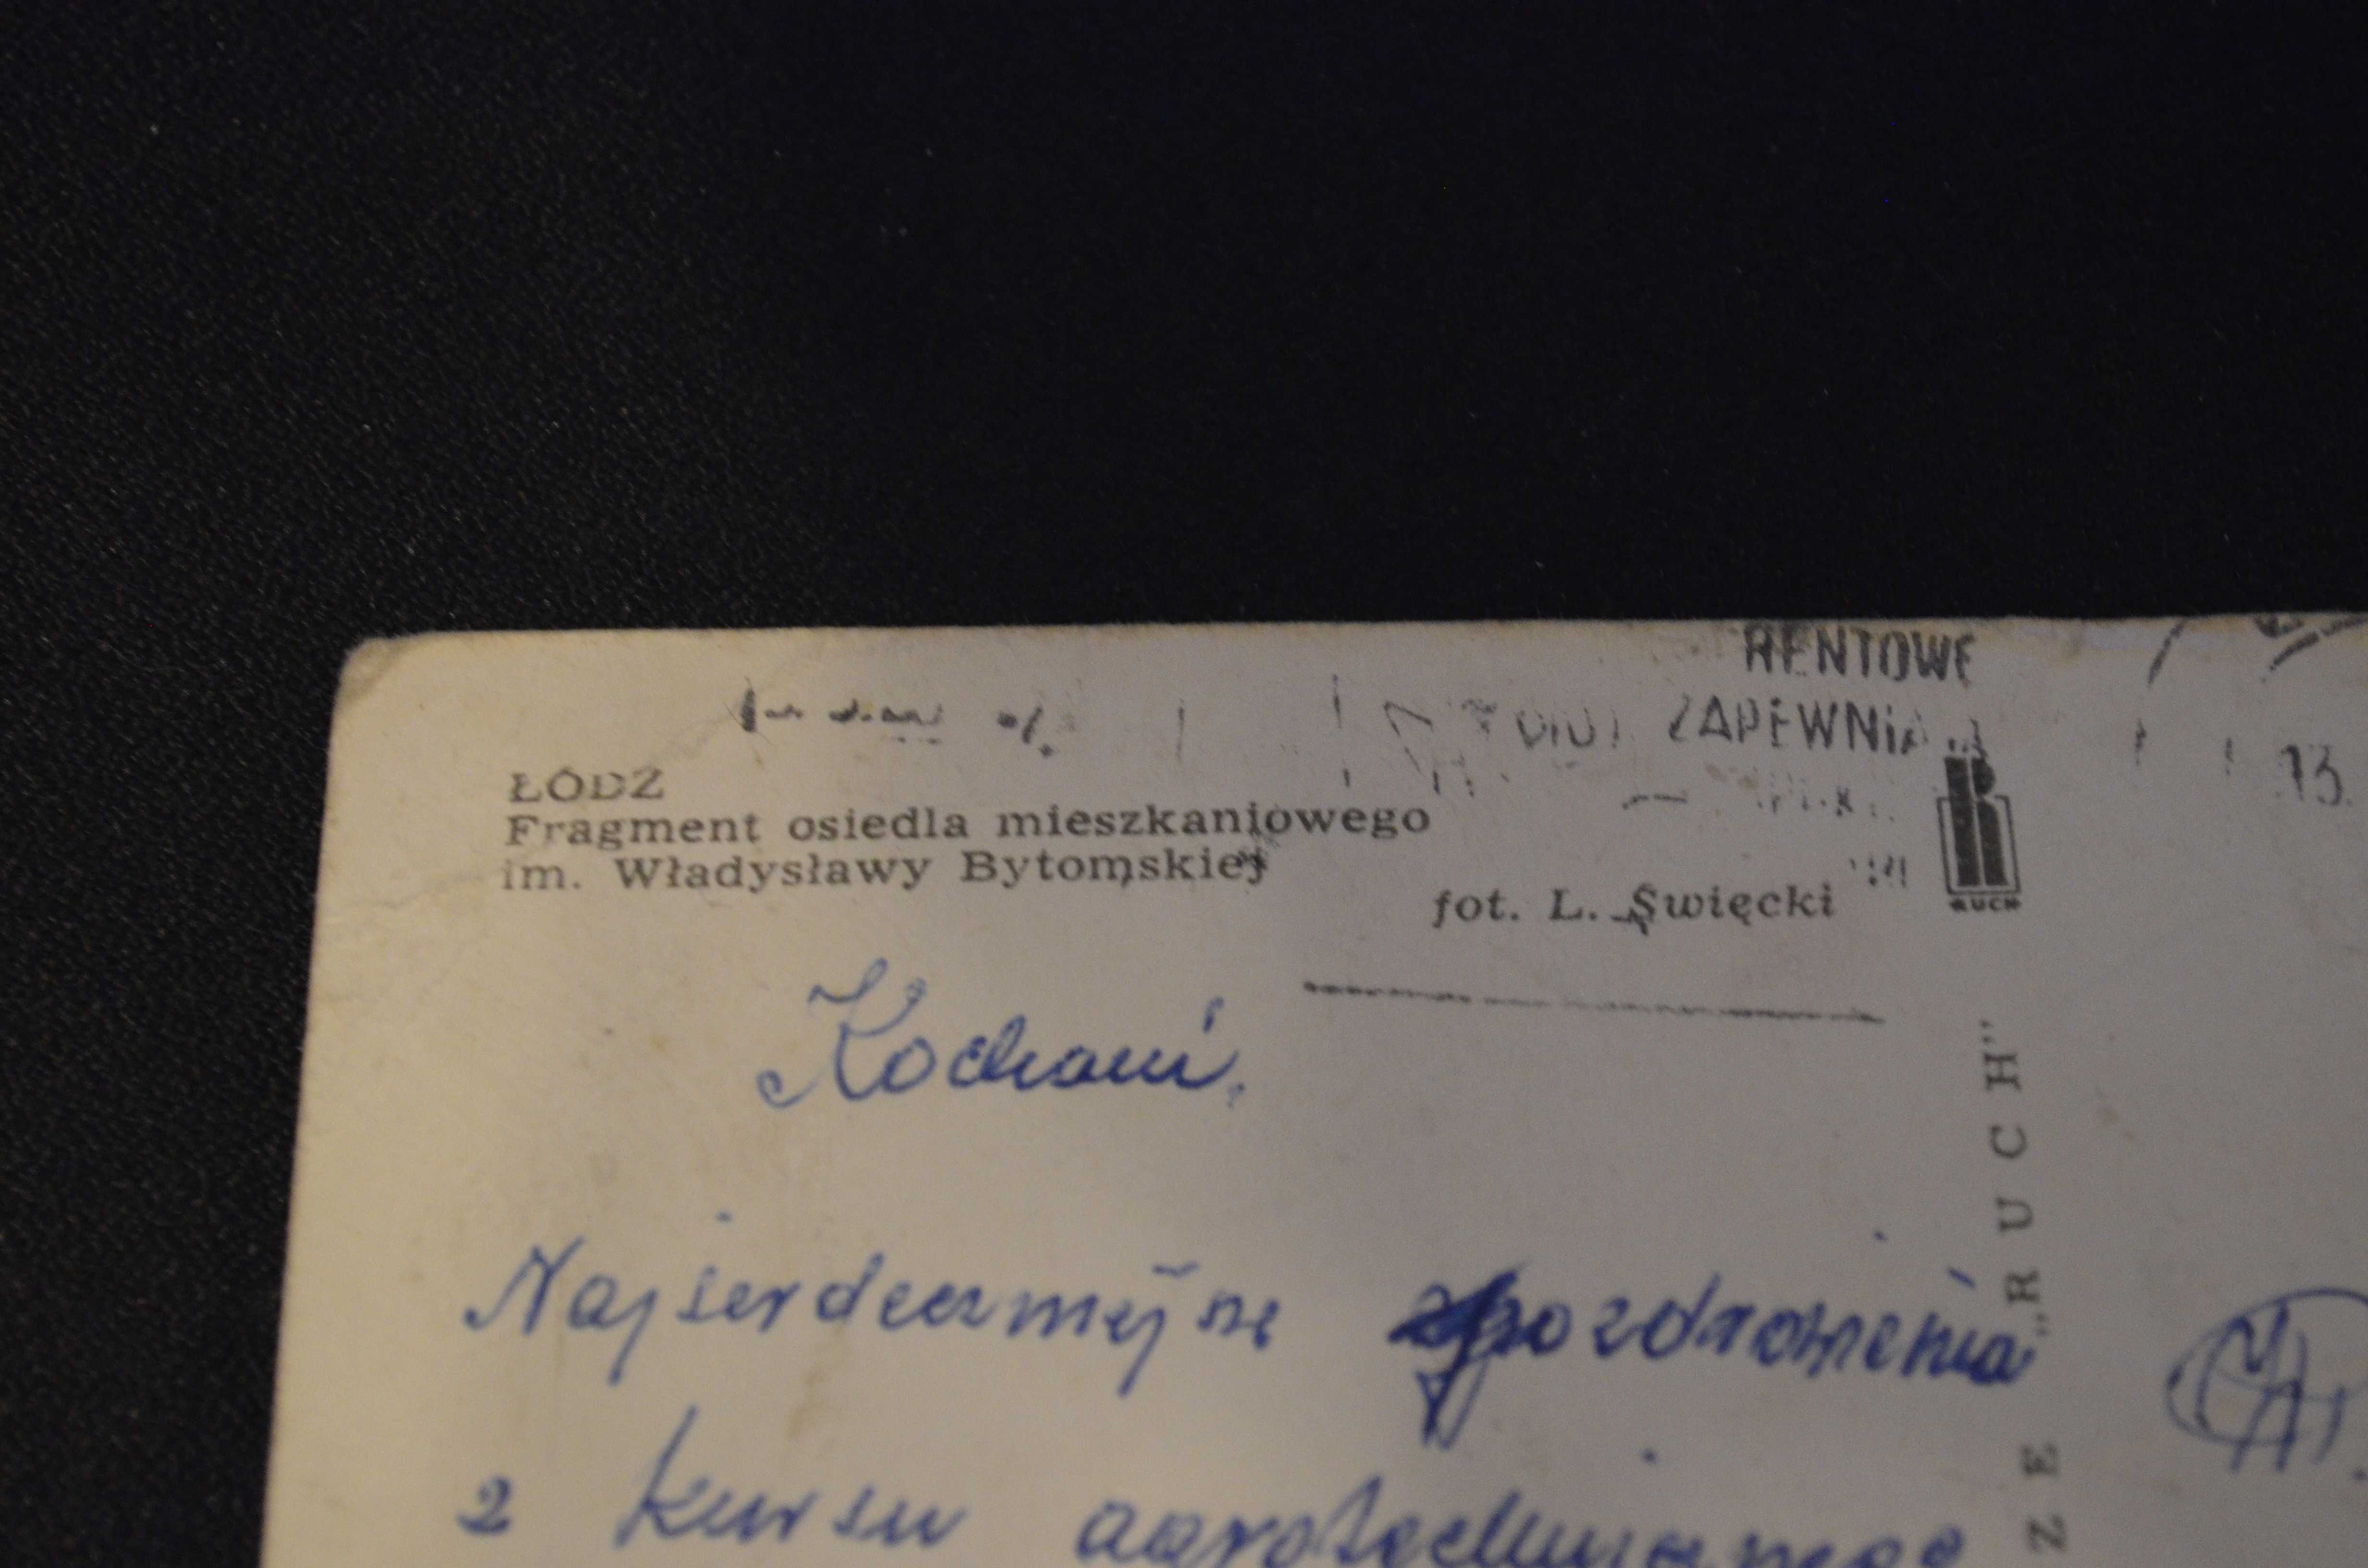 RENTOWE
ZAPEWNIA
ŁÓDŹ
Fragment osiedla mieszkaniowego
im. Władysławy Bytomskiej
fot. L. Święcki
RUCH
13.
Kochani,
Najserdeczniejsze pozdrowienia
z kursu agrotechnicznego
„RUCH"